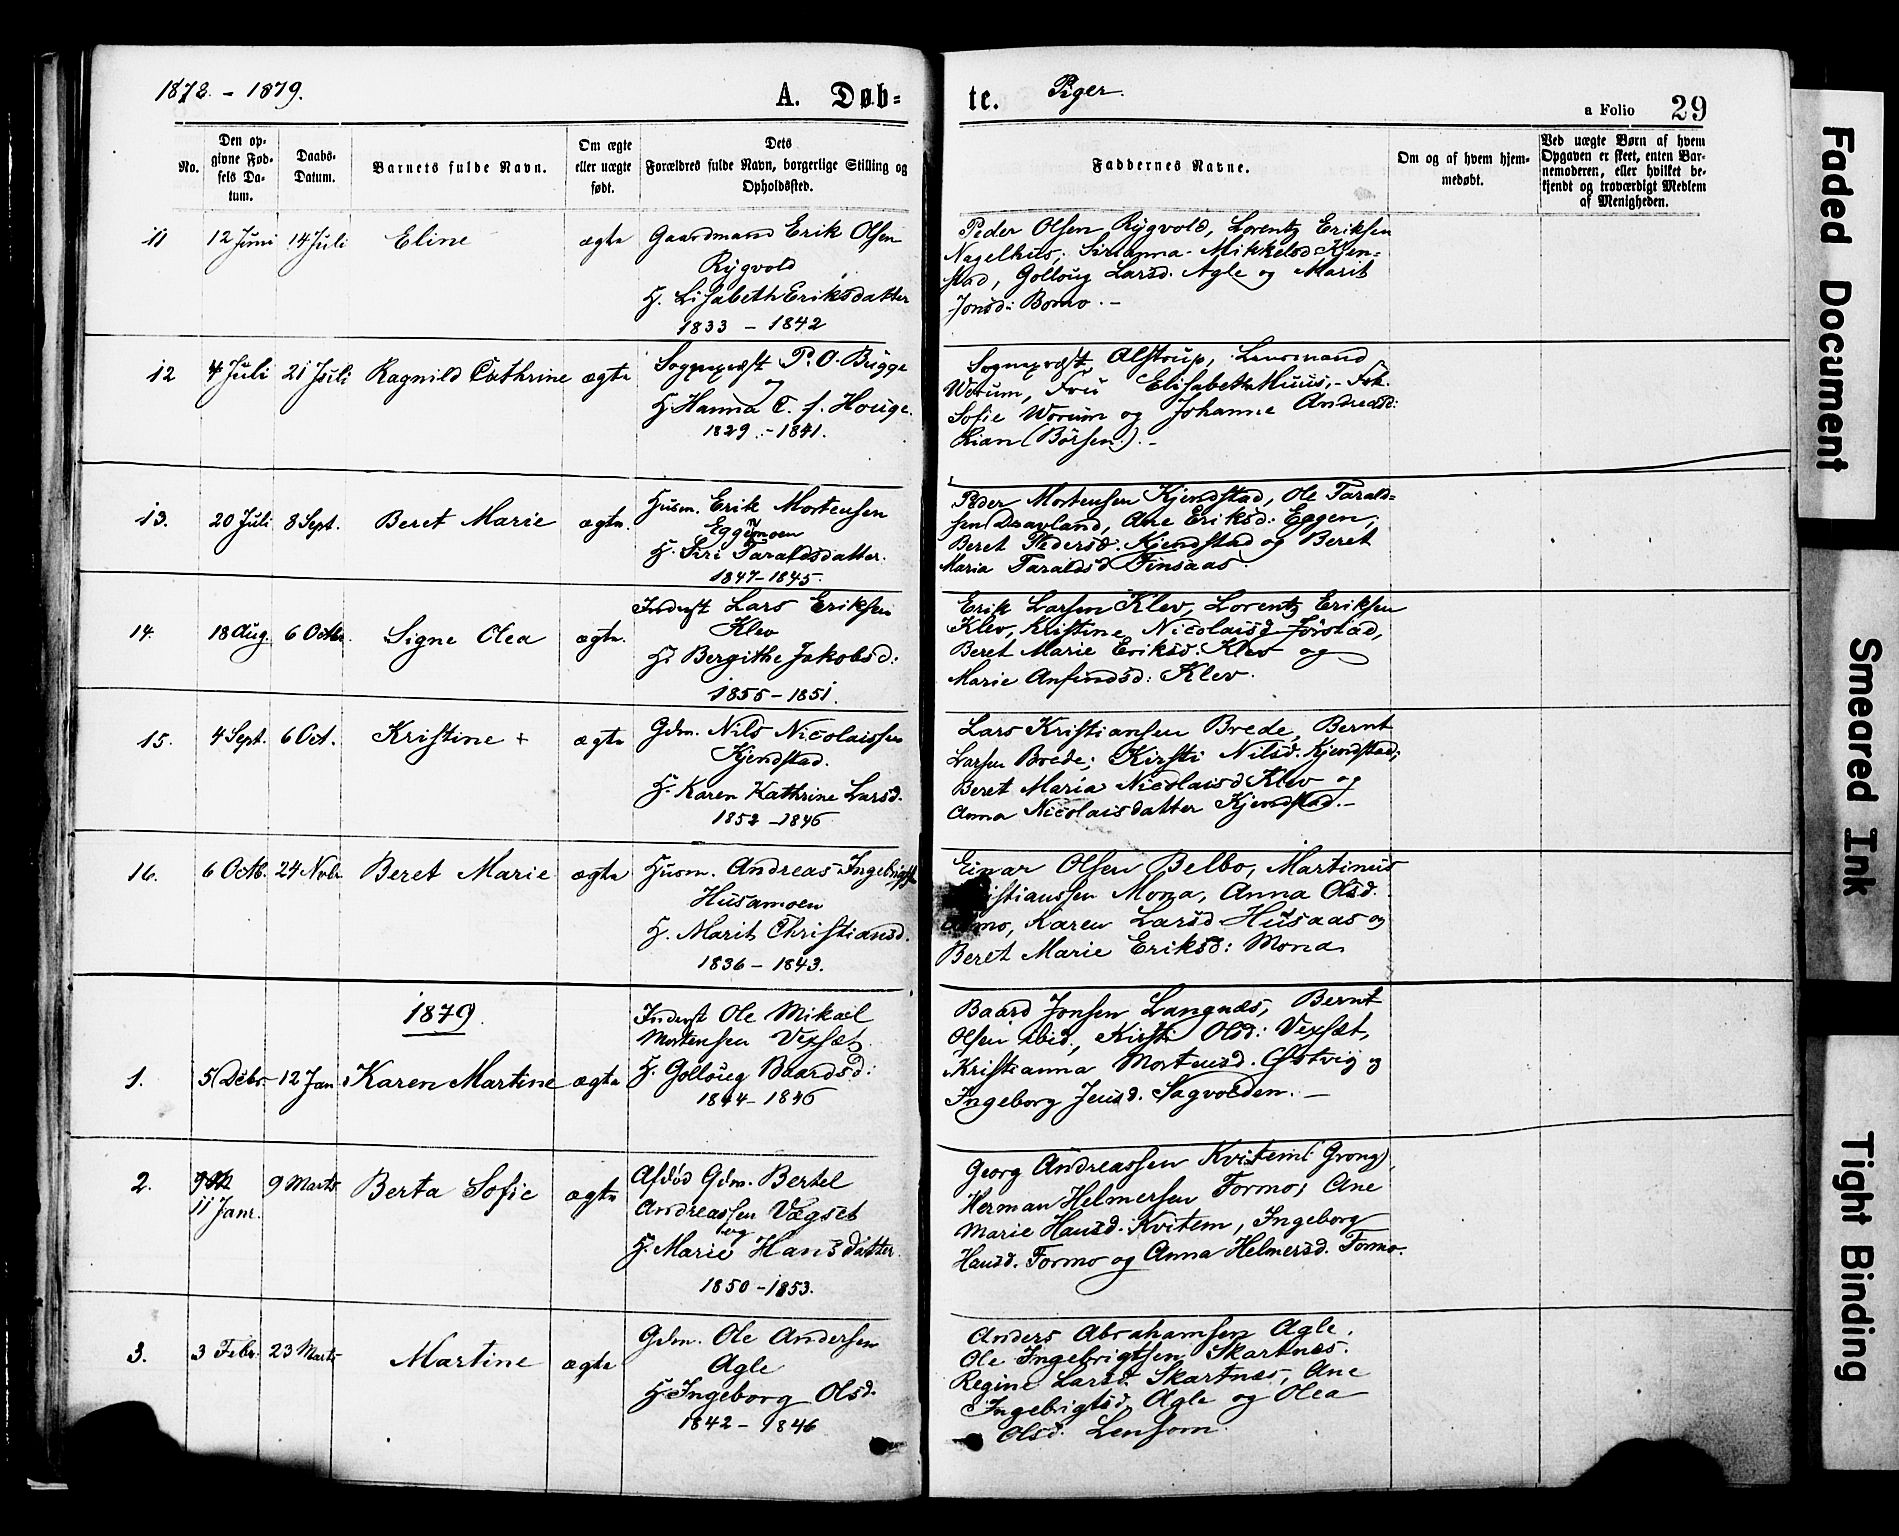 1878. - 1879.
A. Døb=
te. Piger.
a Folio 29
No.
Den op-
givne Fød-
sels Da-
tum.
Daabs-
Datum.
Barnets fulde Navn.
Om ægte
eller uægte
født.
Dets
Forældres fulde Navn, borgerlige Stilling og
Opholdssted.
Faddernes Navne.
Om og af hvem hjem-
medøbt.
Ved uægte Børn af hvem
Opgaven er skeet, enten Bar-
nemoderen, eller hvilket be-
kjendt og troværdigt Medlem
af Menigheden.
11 12 Juni 14 Juli Eline ægte
Gaardmand Erik Olsen
Rygvold
H. Lisabeth Eriksdatter
1833 - 1842
Peder Olsen Rygvold, Lorentz Eriksen
Nagelhus, Mikkelsd Kjen=
stad, Golloug Larsd. Agle og Marit
Jonsd: Bomo. -
12 4 Juli 21 Juli Ragnild Cathrine ægte
Sognepræst P. O. Bugge
og
H. Hanna C. f. Houge.
1829 - 1841.
Sognepræst Alstrup, Lensmand
Worum, Fru Elisabeth Huus, - Frk.
Sofie Worum og Johanne Andreasd:
Lian (Börsen). -
13. 20 Juli 8 Sept. Beret Marie ægte.
Husm. Erik Mortensen
Eggemoen
H. Siri Taraldsdatter.
1847-1845.
Peder Mortensen Kjendstad, Ole Tarald=
sen Davland, Ane Eriksd: Eggen,
Beret Pedersd. Kjendstad og Beret
Maria Taraldsd Finsaas.
14. 18 Aug. 6 Octbr. Signe Olea ægte.
Inderst Lars Eriksen
Klev
H. Bergithe Jakobsd:
1855 - 1851.
Erik Larsen Klev, Lorentz Eriksen
Klev, Kristine Nicolaisd Jörstad,
Beret Marie Eriksd: Klev og
Marie Anfindsd: Klev.
15. 4 Sept. 6 Oct. Kristine + ægte
Gdm. Nils Nicolaissen
Kjendstad.
H. Karen Kathrine Larsd.
1852 - 1846
Lars Kristiansen Brede, Bernt
Larsen Brede, Kirsti Nilsd. Kjendstad,
Beret Maria Nicolaisd Klev og
Anna Nicolaisdatter Kjendstad. -
16. 6 Octb. 24 Nvbr Beret Marie ægte
Husm. Andreas Ingebrigts
Husamoen
H. Marit Christiansd.
1836 - 1843.
Einar Olsen Belbo, Martinus
istianssen Mona, Anna Olsd.
mo, Karen Larsd Husaas og
Beret Marie Eriksd: Mona
1879.
1. 5 Debr. 12 Jan. Karen Martine ægte
Inderst Ole Mikael
Mortensen Vexset
H. Golloug Baardsd:
1844 - 1846
Baard Jonsen Langnæs, Bernt
Olsen ibid, Kirsti Olsd: Vexset,
Kristianna Mortensd. Østvig og
Ingeborg Jensd. Sagvolden. -
2. 11 Janr. 9 Marts Berta Sofie ægte
Afdød Gdm. Bertel
Andreassen Vægset
og
H. Marie Hansdatter.
1850 - 1853.
Georg Andreassen Kvitem (Grong),
Herman Helmersen Formo, Ane
Marie Hansd. Kvitem, Ingeborg
Hansd. Formo og Anna Helmersd. Formo.
3. 3 Febr. 23 Marts Martine ægte
Gdm. Ole Andersen
Agle
H. Ingeborg Olsd.
1842 - 1846
Anders Abrahamsen Agle,
Ole Ingebrigtsen Skartnes.
Regine Larsd. Skartnæs, Ane
Ingebrigtsd. Agle og Olea
Olsd. Lensom.
Faded Document
Smeared Ink
Tight Binding